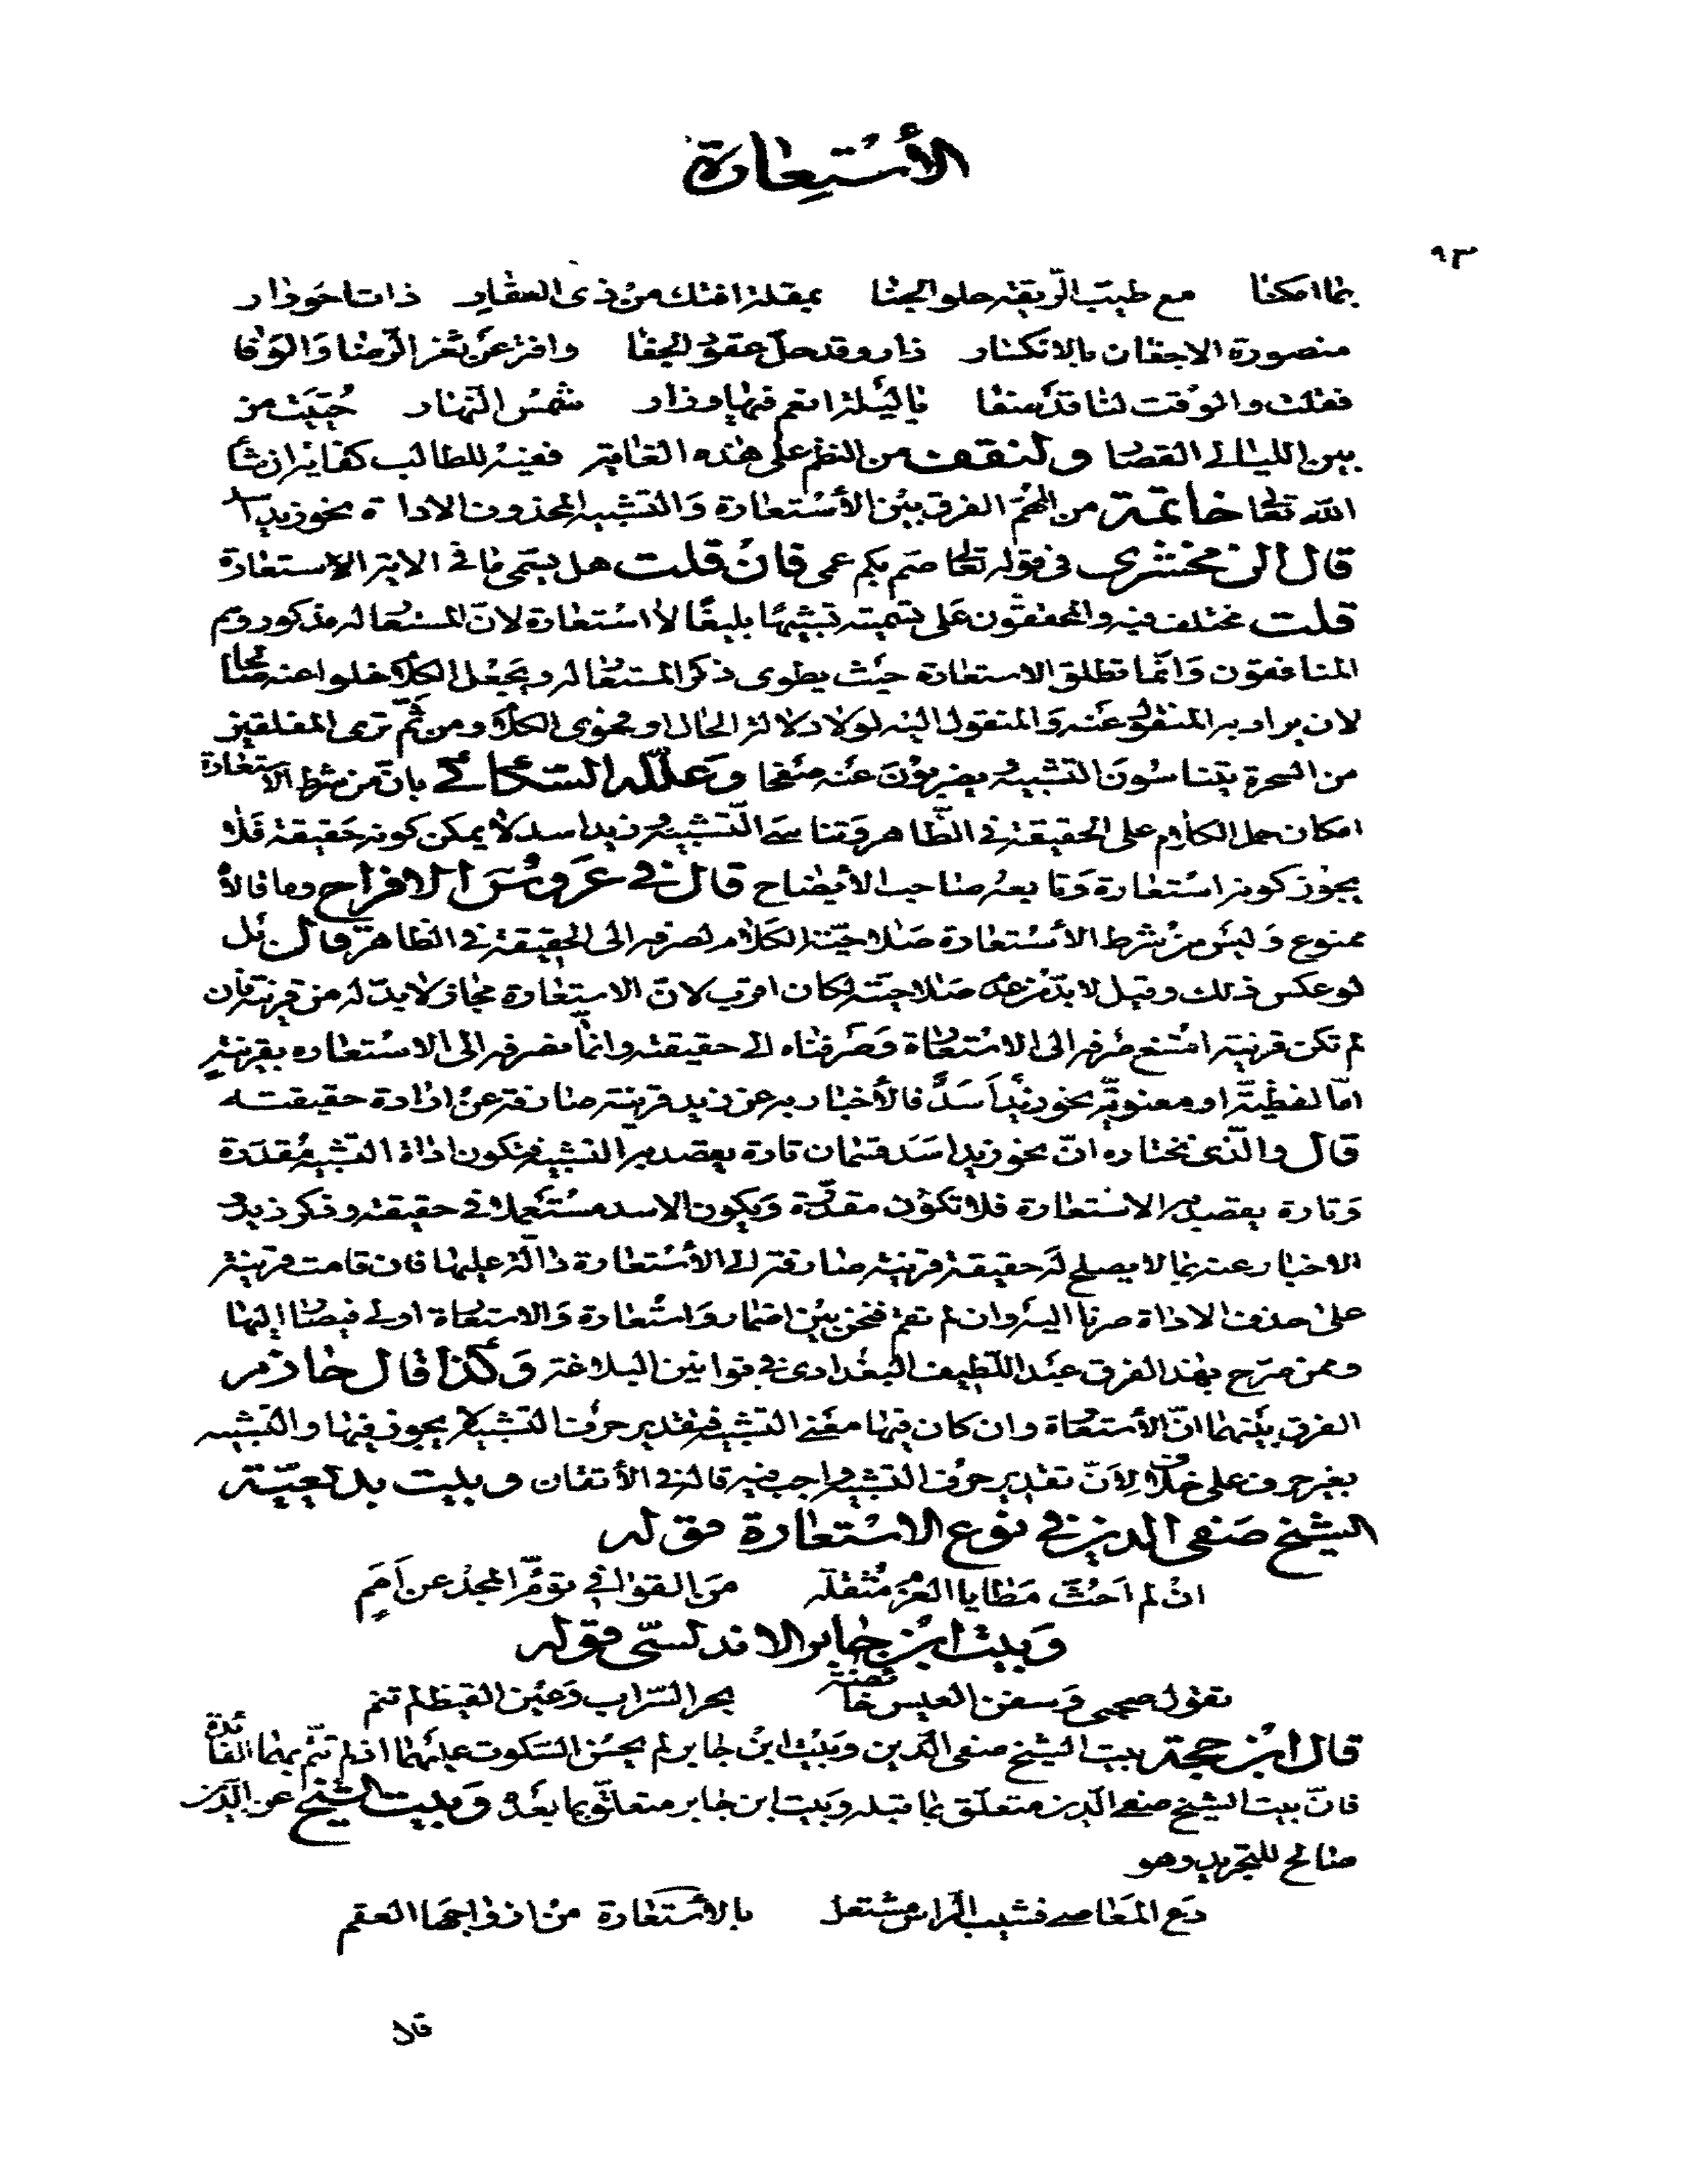 الأستعارة
٩٣
بما امكنا مع طيب الريقة حلو الجنا بمقلة افتك من ذى الفقار ذات احورار
منصورة الاجفان بالانكسار زار وقد حل عقود الجفا وافتر عن ثغر الرضا والوفا
فقلت والوقت لنا قد صفا يا ليلة انعم فيها وزار شمس النهار حييت من
بين الليالى القصار ولنقف من النظم على هذه الغاية ففيه للطالب كفاية ان شاء
الله تعالى خاتمة من المهم الفرق بين الأستعارة والتشبيه المحذوف الاداة نحو زيد اسد
قال الزمخشرى فى قوله تعالى صم بكم عمى فان قلت هل يسمى ما فى الاية الاستعارة
قلت مختلف فيه والمحققون على تسميته تشبيها بليغا لا استعارة لان المستعار له مذكور وهم
المنافقون وانما تطلق الاستعارة حيث يطوى ذكر المستعار له ويجعل الكلام خلوا عنه صالحا
لان يراد به المنقول عنه والمنقول اليه لولا دلالة الحال او فحوى الكلام ومن ثم ترى المفلقين
من السحرة يتناسون التشبيه ويضربون عنه صفحا وعلله السكاكى بان من شرط الاستعارة
امكان حمل الكلام على الحقيقة فى الظاهر وتناسى التشبيه وزيد اسد لا يمكن كونه حقيقة فلا
يجوز كونه استعارة وتابعه صاحب الأيضاح قال فى عروس الافراح وما قالاه
ممنوع وليس من شرط الأستعارة صلاحية الكلام لصرفه الى الحقيقة فى الظاهر قال بل
لو عكس ذلك وقيل لا بد من عدم صلاحيته لكان اقرب لان الاستعارة مجاز لا بد له من قرينة فان
لم تكن قرينة امتنع صرفه الى الاستعارة وصرفناه الى حقيقته وانما نصرفه الى الاستعاره بقرينة
اما لفظية او معنوية نحو زيد اسد فالأخبار به عن زيد قرينة صارفة عن ارادة حقيقته
قال والذى نختاره ان نحو زيد اسد قسمان تارة يقصد به التشبيه فتكون اداة التشبيه مقدرة
وتارة يقصد به الاستعارة فلا تكون مقدرة ويكون الاسد مستعملا فى حقيقته وذكر زيد و
الاخبار عنه بما لا يصلح له حقيقة قرينة صارفة الى الأستعارة دالة عليها فان قامت قرينة
على حذف الاداة صرنا اليه وان لم تقم فنحن بين اضمار واستعارة والاستعارة اولى فيصار إليها
وممن صرح بهذ الفرق عبد اللطيف البغدادى فى قوانين البلاغة وكذا قال حازم
الفرق بينهما ان الأستعارة وان كان فيها معنى التشبيه فتقدير حرف التشبيه لا يجوز فيها والتشبيه
بغير حرف على خلاف لان تقدير حرف التشبيه واجب فيه قاله فى الأتقان وبيت بديعية
الشيخ صفى الدين فى نوع الاستعارة قوله
ان لم احث مطايا العزم مثقلة من القوافى تؤم المجد عن امم
وبيت ابن جابر الاندلسى قوله
تقول صحبى وسفن العيس خائضة بحر السراب وعين القيظ لم تنم
قال ابن حجة بيت الشيخ صفى الدين وبيت ابن جابر لم يحسن السكوت عليهما اذ لم تتم بهما الفائدة
فان بيت الشيخ صفى الدين متعلق بما قبله وبيت ابن جابر متعلق بما بعده وبيت الشيخ عز الدين
صالح للتجريد وهو
دع المعاصى فشيب الراس مشتعل بالأستعارة من ازواجها العقم
قال